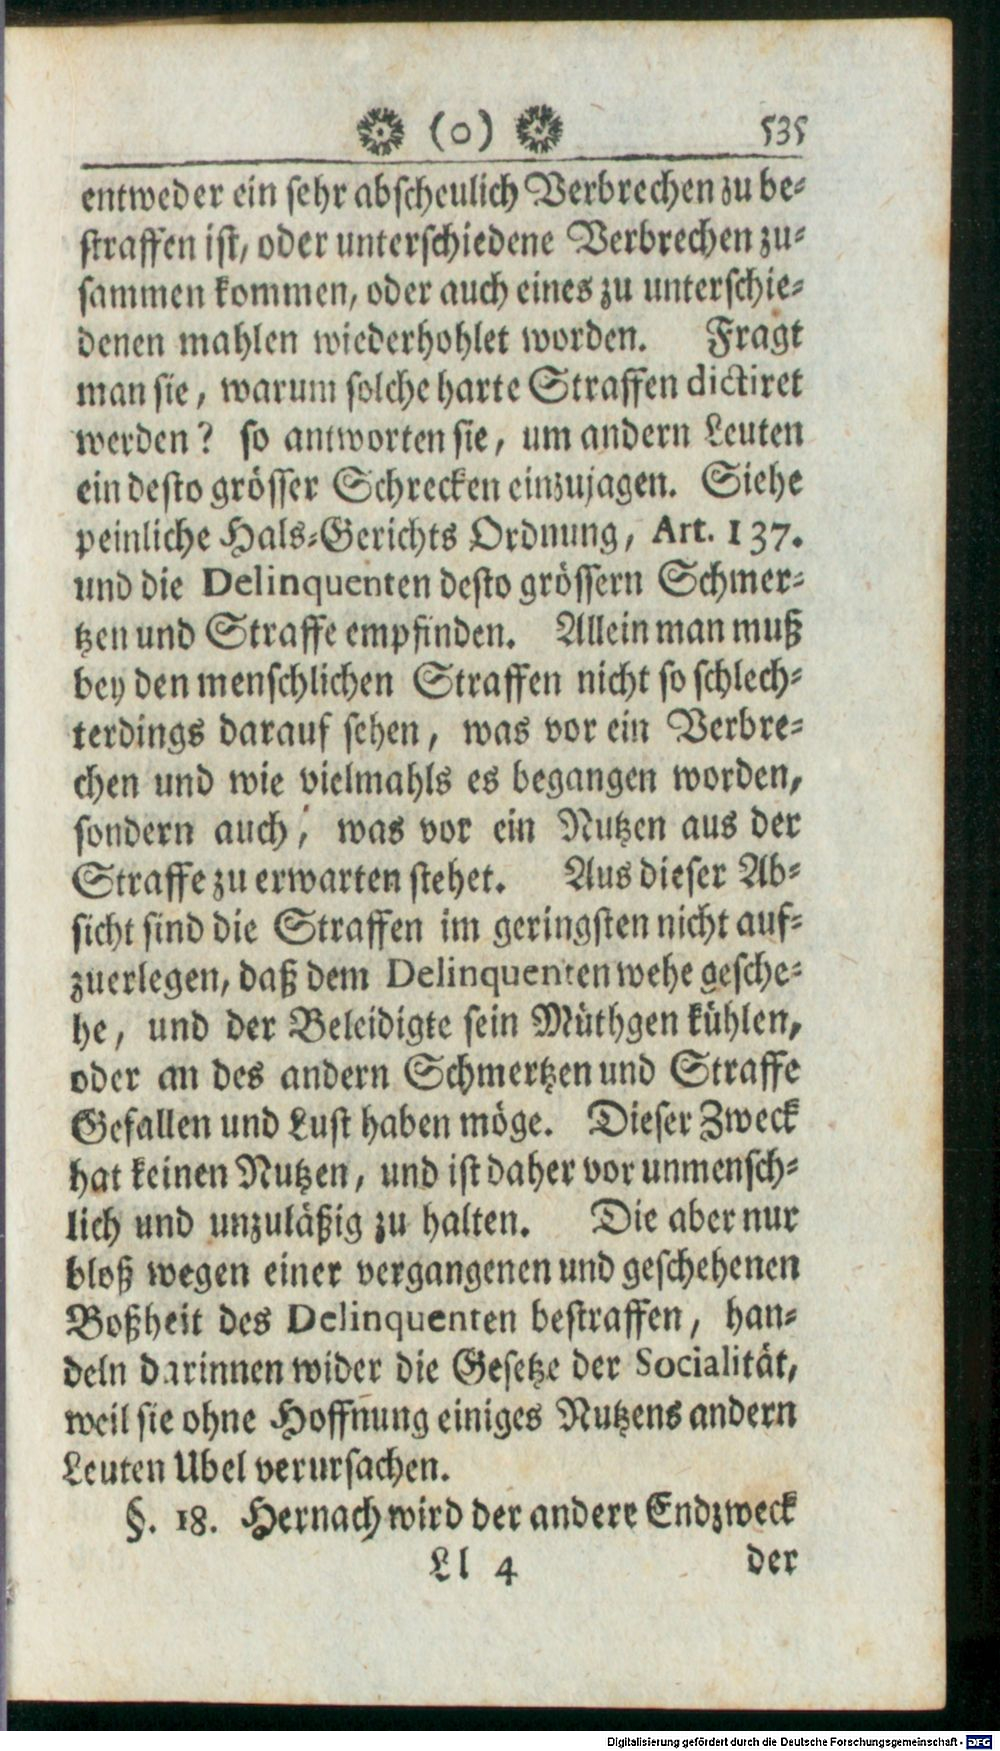 (o) 535
entweder ein sehr abscheulich Verbrechen zu be-
straffen ist, oder unterschiedene Verbrechen zu-
sammen kommen, oder auch eines zu unterschie-
denen mahlen wiederhohlet worden. Fragt
man sie, warum solche harte Straffen dictiret
werden? so antworten sie, um andern Leuten
ein desto grösser Schrecken einzujagen. Siehe
peinliche Hals-Gerichts Ordnung, Art. 137.
und die Delinquenten desto grössern Schmer-
tzen und Straffe empfinden. Allein man muß
bey den menschlichen Straffen nicht so schlech-
terdings darauf sehen, was vor ein Verbre-
chen und wie vielmahls es begangen worden,
sondern auch, was vor ein Nutzen aus der
Straffe zu erwarten stehet. Aus dieser Ab-
sicht sind die Straffen im geringsten nicht auf-
zuerlegen, daß dem Delinquenten wehe gesche-
he, und der Beleidigte sein Müthgen kühlen,
oder an des andern Schmertzen und Straffe
Gefallen und Lust haben möge. Dieser Zweck
hat keinen Nutzen, und ist daher vor unmensch-
lich und unzuläßig zu halten. Die aber nur
bloß wegen einer vergangenen und geschehenen
Boßheit des Delinquenten bestraffen, han-
deln darinnen wider die Gesetze der Socialität,
weil sie ohne Hoffnung einiges Nutzens andern
Leuten Ubel verursachen.
§. 18. Hernach wird der andere Endzweck
Ll 4 der
Digitalisierung gefördert durch die Deutsche Forschungsgemeinschaft - DFG